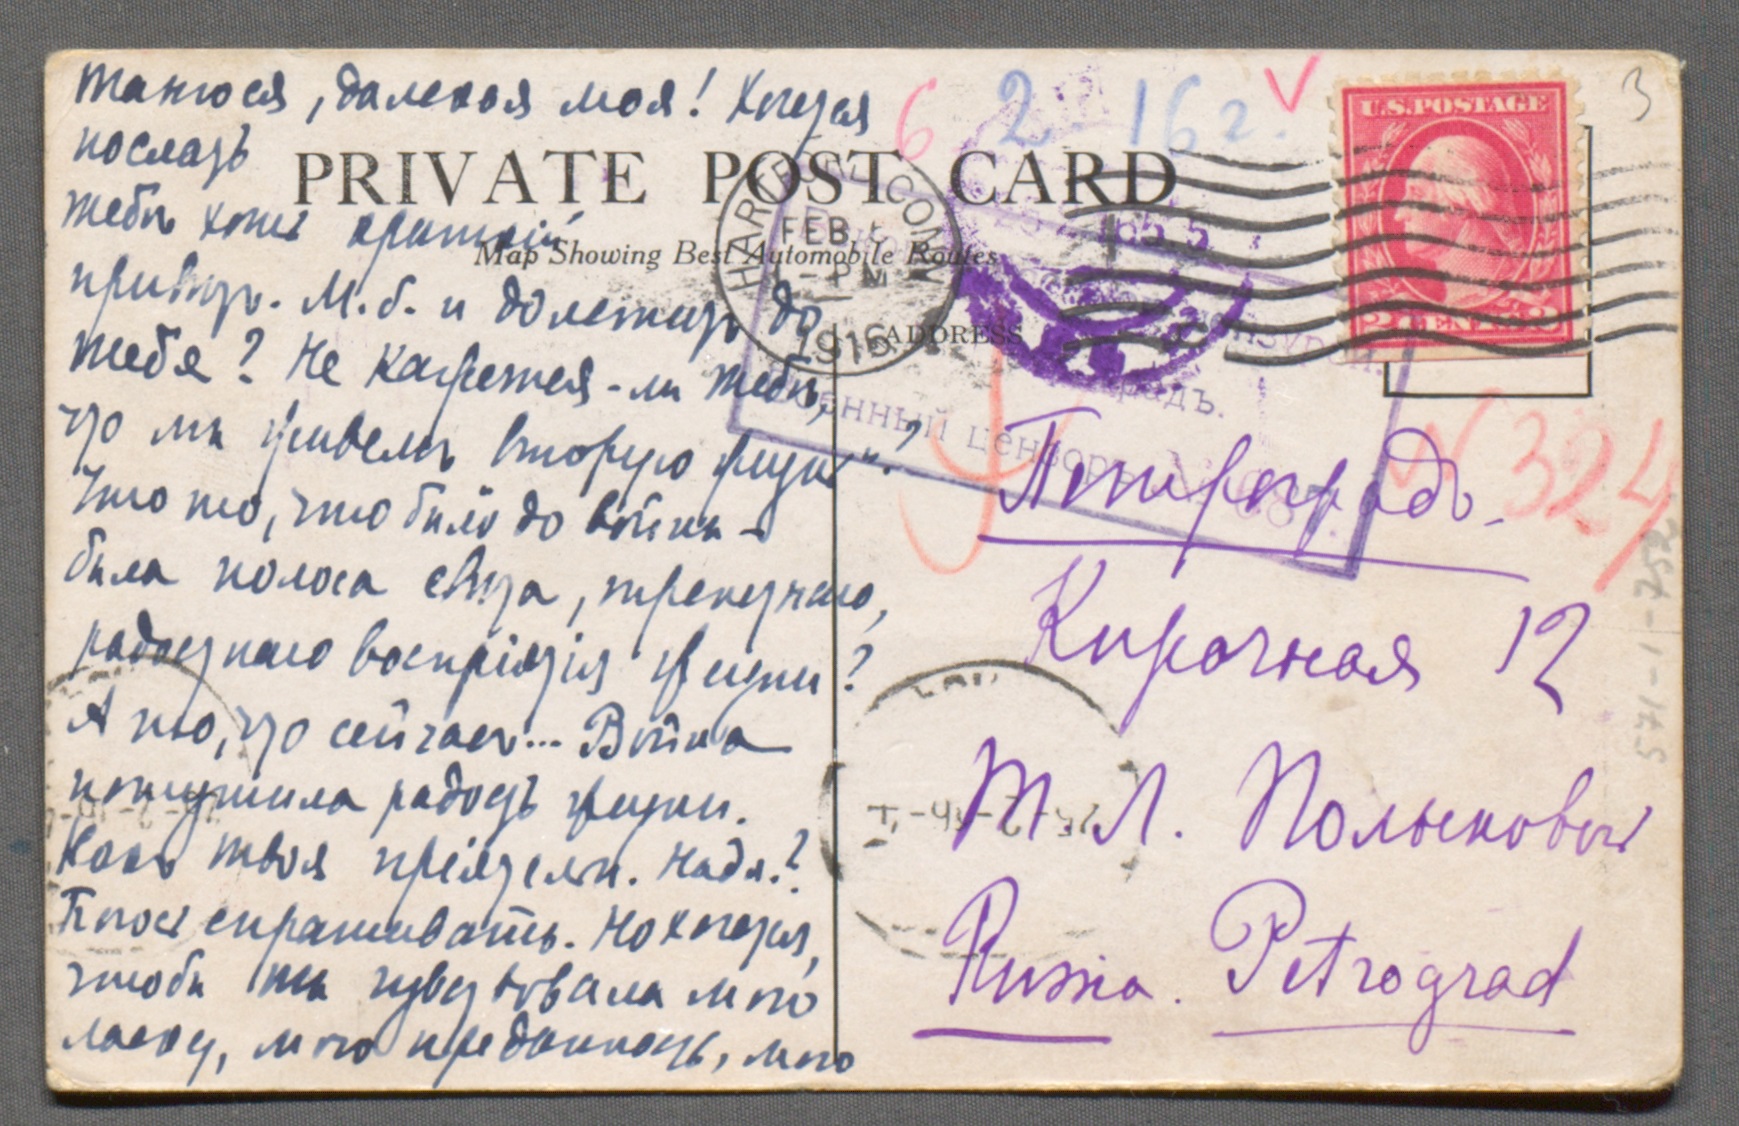 Танюся, далекая моя! Хочется
послать
тебѣ хоть краткій
привѣт. М.б. и долетитъ до
тебя? Не кажется-ли тебѣ,
что мы живемъ вторую жизнь?
Что то, что было до войны –
была полоса свѣта, трепетнаго,
радостнаго воспріятія жизни?
А то, что сейчасъ... Война
потушила радость жизни.
Какъ твоя пріятельн. Надя?
спрашивать. Но хочется,
чтобы ты чувствовала мою
ласку, мою преданность, мою
PRIVATE POST CARD
Map Showing Best Automobile Routes
ADDRESS
HARTFORD, CONN
FEB.
- PM
1916
6 2 16 г. V
3
U.S.POSTAGE
2 CENTS 2
военный цензоръ
№ 324
Петроградъ.
Кирочная 12
Т Л. Полыновой
Russia. Petrograd
571-1-752